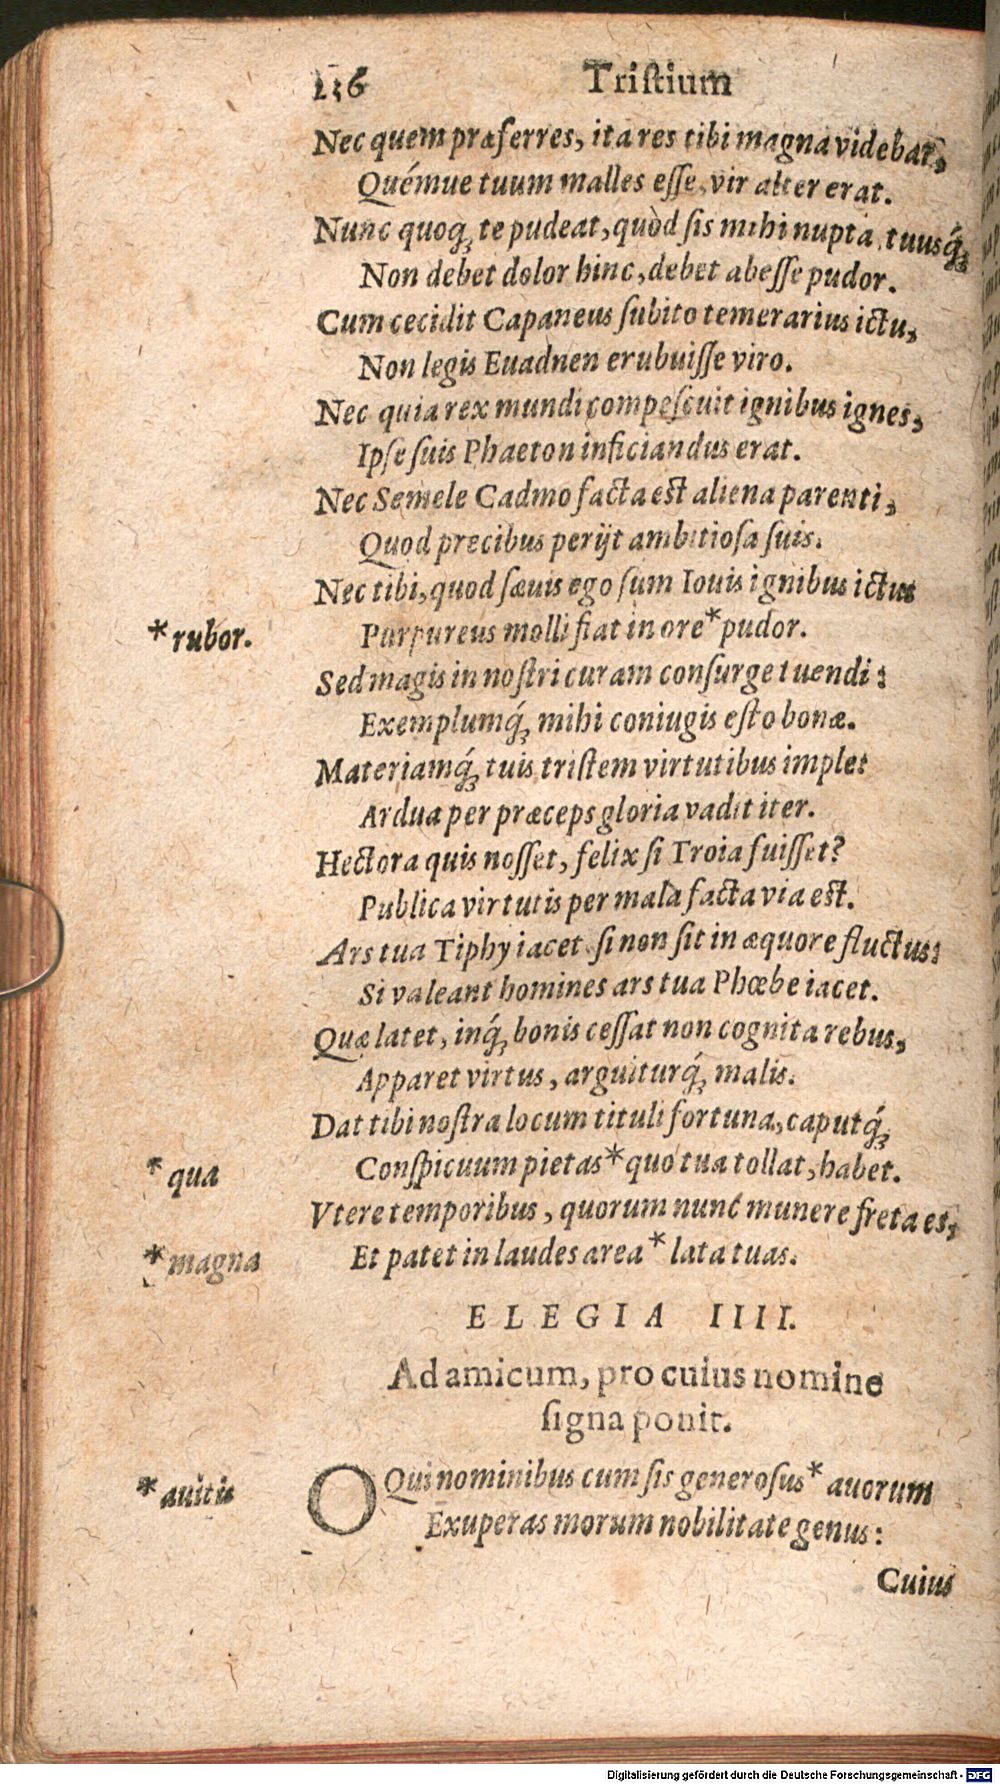 136 Triſtium
Nec quem præferres, ita res tibi magna videbar,
Quémue tuum malles eſſe, vir alter erat.
Nunc quoq; te pudeat, quòd ſis mihi nupta, tuusq́;
Non debet dolor hinc, debet abeſſe pudor.
Cum cecidit Capaneus ſubito temerarius ictu,
Non legis Euadnen erubuiſſe viro.
Nec quia rex mundi compeſcuit ignibus ignes,
Ipſe ſuis Phaeton inficiandus erat.
Nec Semele Cadmo facta est aliena parenti,
Quod precibus perijt ambitioſa ſuis.
Nec tibi, quod ſæuis ego ſum Iouis ignibus ictus
*rubor. Purpureus molli fiat in ore*pudor.
Sed magis in noſtri curam conſurge tuendi:
Exemplumq́; mihi coniugis eſto bonæ.
Materiamq́; tuis tristem virtutibus imple:
Ardua per præceps gloria vadit iter.
Hectora quis noſſet, felix ſi Troia fuiſſet?
Publica virtutis per mala facta via est.
Ars tua Tiphy iacet, ſi non ſit in æquore fluctus:
Si valeant homines ars tua Phœbe iacet.
Quæ latet, inq́; bonis ceſſat non cognita rebus,
Apparet virtus, arguiturq́; malis.
Dat tibi noſtra locum tituli fortuna, caputq́;
*qua Conſpicuum pietas*quo tua tollat, habet.
Vtere temporibus, quorum nunc munere freta es,
*magna Et patet in laudes area*lata tuas.
ELEGIA IIII.
Ad amicum, pro cuius nomine
ſigna ponit.
*auitis O Qui nominibus cum ſis generoſus*auorum
Exuperas morum nobilitate genus:
Cuius
Digitalisierung gefördert durch die Deutsche Forschungsgemeinschaft - DFG